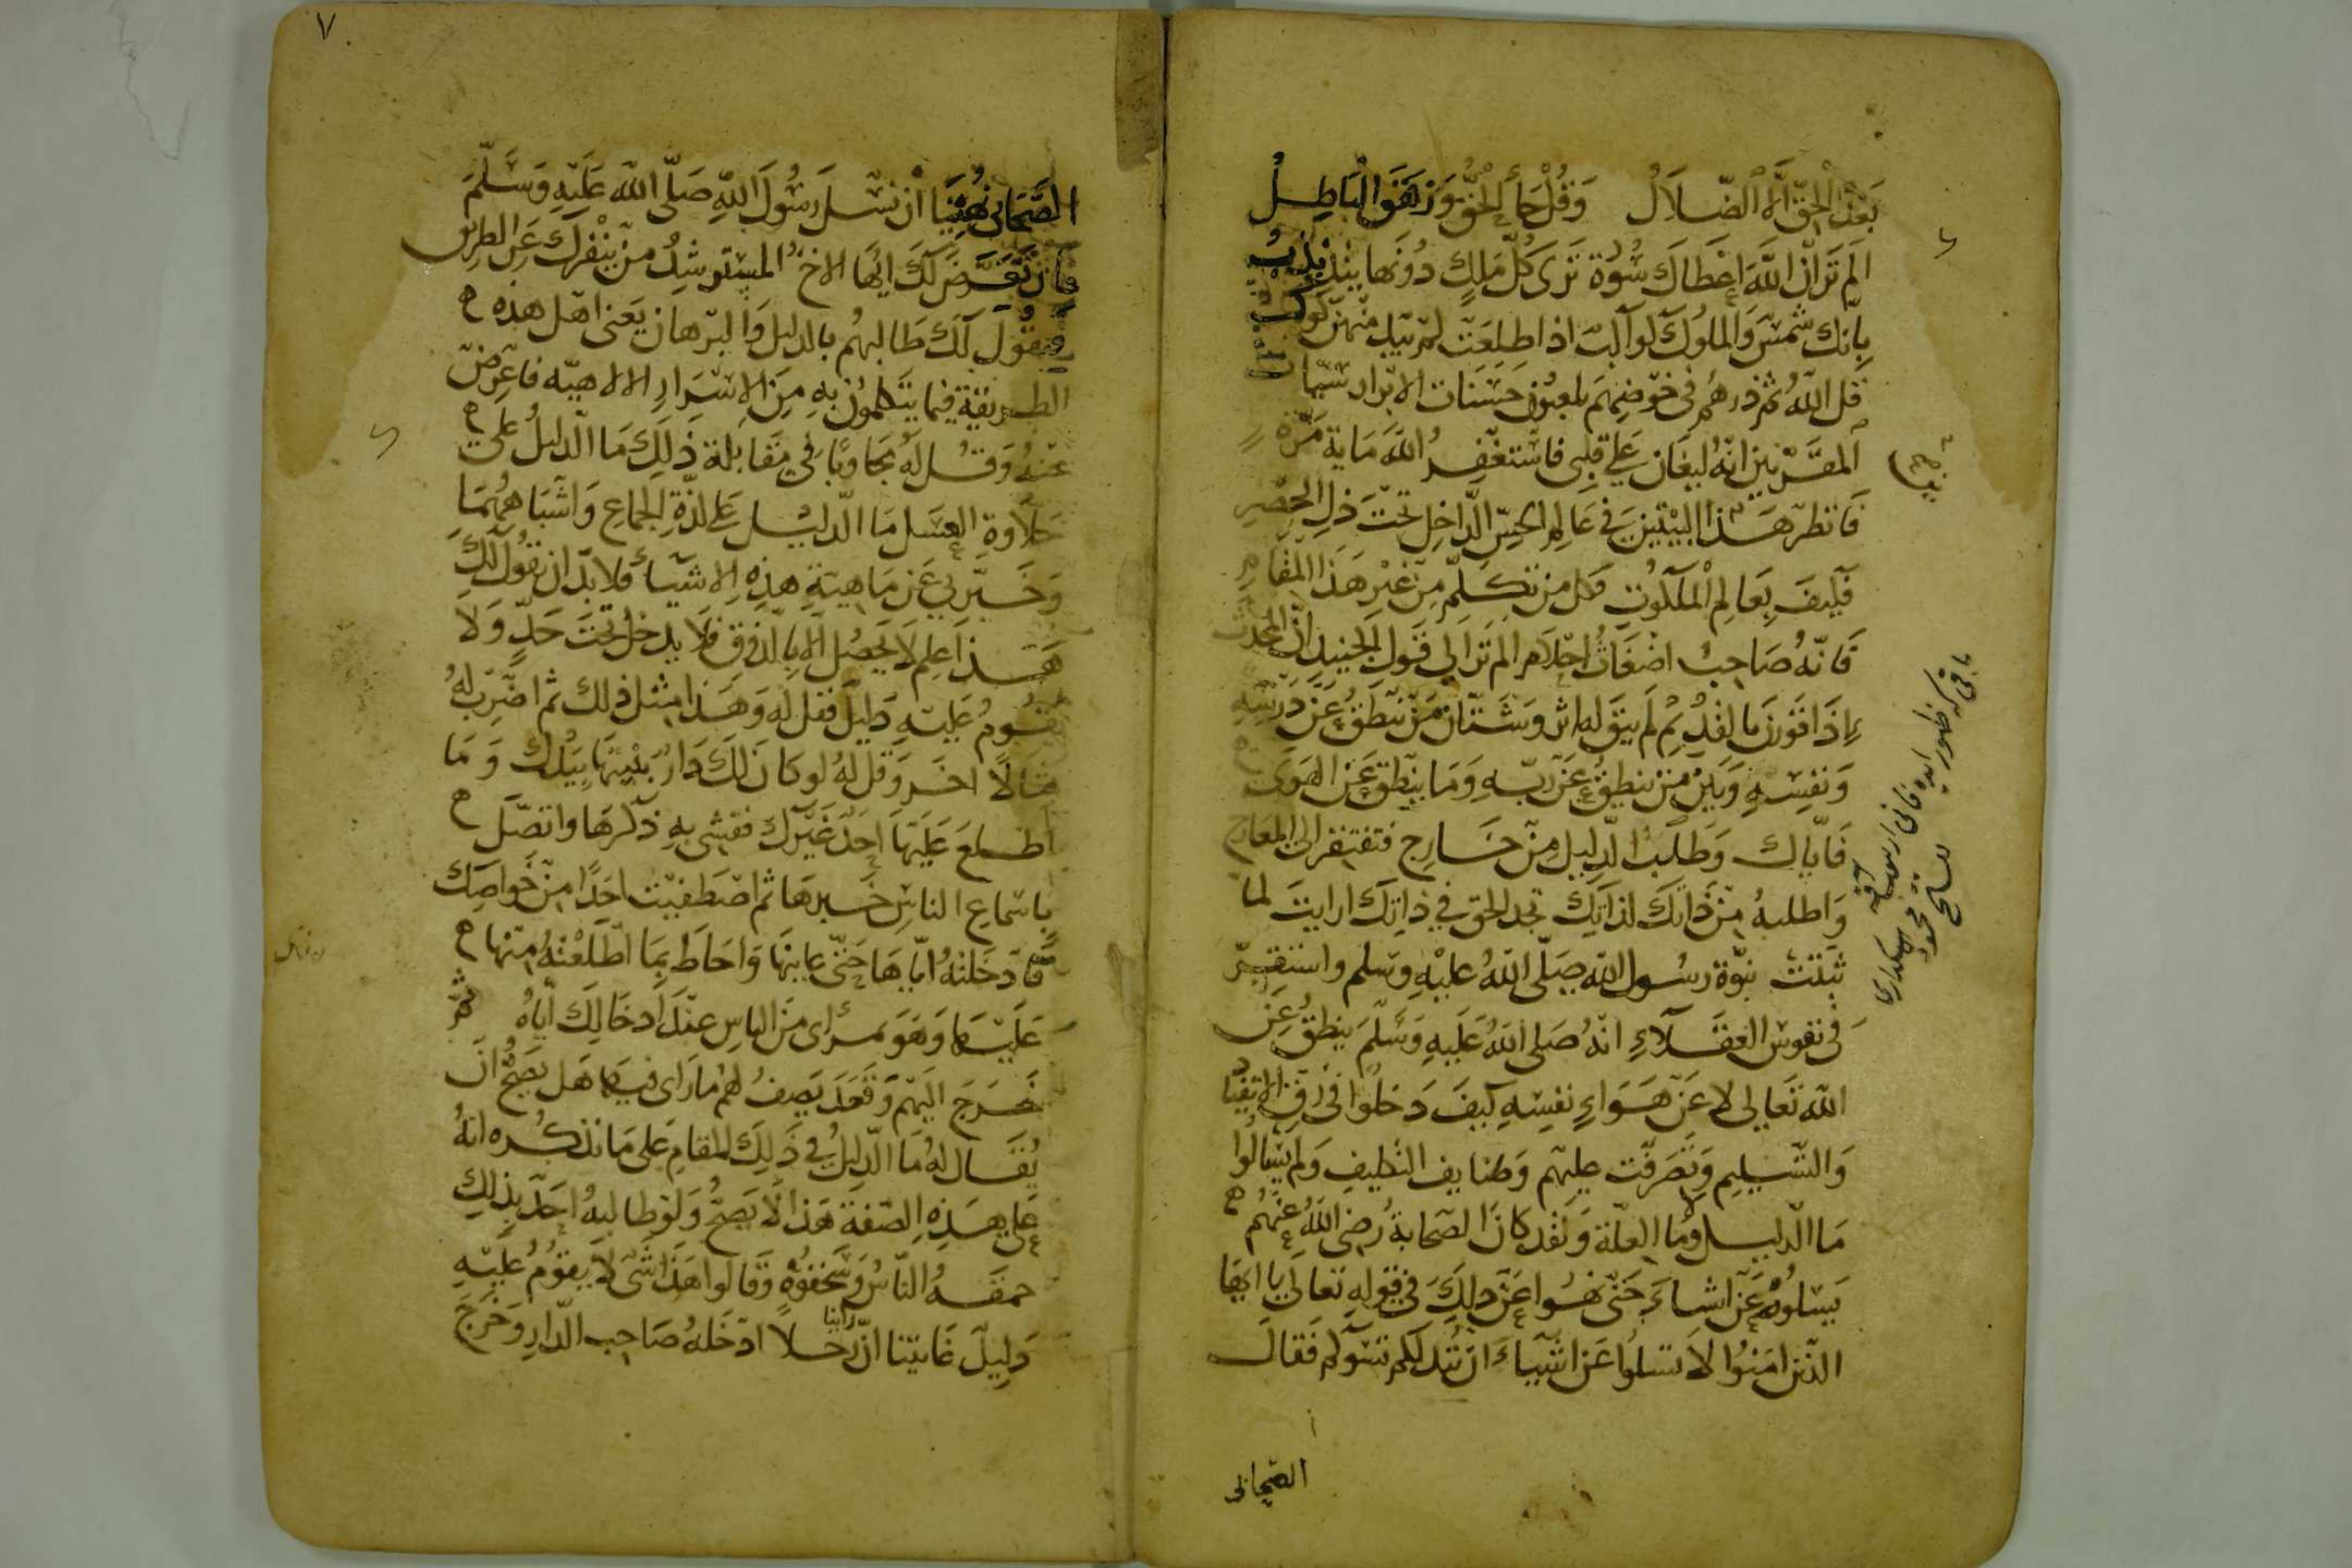 بَعْدَ الْحَقِّ اِلَّا الضَّلَالُ وَقُلْ جَاءَ الْحَقُّ وَزَهَقَ الْبَاطِلُ
الم تَرَ اَنَّ اللّٰهَ اعطَاكَ سُورَة تَرَى كُلَّ مَلِكٍ دُونَها يتذبذب
بِاَنّك شمس وَالملوك كواكب اذا طلعت لم يبد منهن كوكب
قل اللّٰهُ ثم ذرهُم فى خوضِهم يلعبون حَسَنات الابرار سَيّئات
المقَرّبين انّه ليغان عَلى قلبى فاستغفرُ اللّٰهَ مَاية مَرّة
فَانظر هَذا البيتين فى عَالم الحِسّ الدَّاخِل تحْتَ ذلِ الحَصْرِ
فكيفَ بعَالم الملكوت فكل من تكلّم مِن غيْر هَذا المقَام
فَانّه صَاحِبُ اضغَاث احلَام الم تَرَ الى قَول الجنيد اِنّ المحدَث
اِذَا قورن بالقديْم لَم يبق له اثر وشَتّان من ينطقُ عَن دَرْسِهِ
وَنفسِهِ وَبَيْن مَن ينطقُ عَن رَبّهِ وَمَا ينطق عَن الهَوى
فَاِيّاك وَطلبَ الدّليل مِن خَارج فتفتقر الى المعَارج
وَاطلبهُ مِن ذَاتك لذاتِك تجد الحق فى ذاتِك ارايت لما
ثبتت نبوّة رسُول اللّٰه صَلّى اللّٰهُ عليْهِ وسَلم واستقرّ
فى نفوس العقَلَاءِ انّهُ صَلى اللّٰهُ عَلَيهِ وَسَلّمَ ينطقُ عَن
اللّٰه تَعالى لا عَن هَوَاءِ نفسِهِ كيفَ دَخلُوا فى رِقّ الانقياد
وَالتّسليم وَتصَرّفت عليهم وظايف التكليفِ وَلم يسَالُوا
مَا الدّليل ومَا العِلّة وَلقد كانَ الصّحابةُ رضى اللّٰهُ عنهُم
يَسَلُونهُ عَن اشياءَ حَتّى نهُوا عَن ذلِكَ فى قوله تعالى يا ايها
الذين امَنُوا لا تسَلوا عَن اشياءَ ان تبد لكم تسؤكم فقالَ
الصّحابى
باقى كه ظهور ايده فانى
محمود اسكدارى
٧
الصَّحَابى نُهِينَا أن نسْلَ رَسُولَ اللّٰهِ صَلّى اللّٰه عَلَيْهِ وَسَلّمَ
فان تَعَرّضَ لَكَ ايّها الاخُ المستَرشِدُ مَن ينفرك عَن الطريق
فيقُول لَكَ طَالبهُم بالدليل وَالبرهان يَعنى اهل هذه
الطريقة فيما يتَكلمون بِهِ مِنَ الاسْرَارِ الالاهيّه فاعرِض
عنهُ وَقل لهُ مجاوبًا فى مقَابلة ذلِكَ مَا الدّليلُ على
حَلاوةِ العسَل مَا الدّليل عَلى لذّةِ الجِماع وَاشبَاههمَا
وَخَبّرنى عَن مَاهيةِ هذِهِ الاشيَاءِ فلا بدّ ان يقُولَ لكَ
هَذا عِلم لَا يَحصُل الّا بالذّوقِ فَلَا يدخل تحتَ حَدٍّ وَلَا
يقومُ عَليْهِ دَليل فقل له وَهَذا مثل ذلك ثم اضرب لهُ
مثالًا اخَر وَقل لهُ لو كانَ لكَ دَارٌ بنيتَهَا بيَدك وَمَا
اطلعَ عَليهَا احَدٌ غَيرك فتشى بهِ ذكرهَا واتصَل
باسمَاعِ الناس خَبرهَا ثم اصطفيْت احَدًا مِن خواصِك
فَادخَلتهُ ايّاهَا حَتّى عاينهَا وَاحَاطَ بِمَا اطلعْتهُ منها
عَليْهَا وَهو بمرأى مِنَ الناسِ عنْدَ ادخالِكَ ايّاهُ ثمّ
خَرَجَ اليهم وَقعَدَ يَصِفُ لهُم مَا رَاى فيهَا هَل يصحّ ان
يُقَال لهُ مَا الدّليلُ فى ذَلِكَ المقام عَلى مَا تذكُره انهُ
عَلى هَذِهِ الصّفة هَذا لا يَصحّ وَلو طالبهُ احَد بذلِكِ
حمقَهُ النّاسُ وَسَخّفوهُ وَقَالوا هَذا شئ لا يقومُ عَليْهِ
دَليلٌ غَايتنا انّا رأينا رجلًا ادخَلهُ صَاحِب الدّارِ وَخَرَجَ